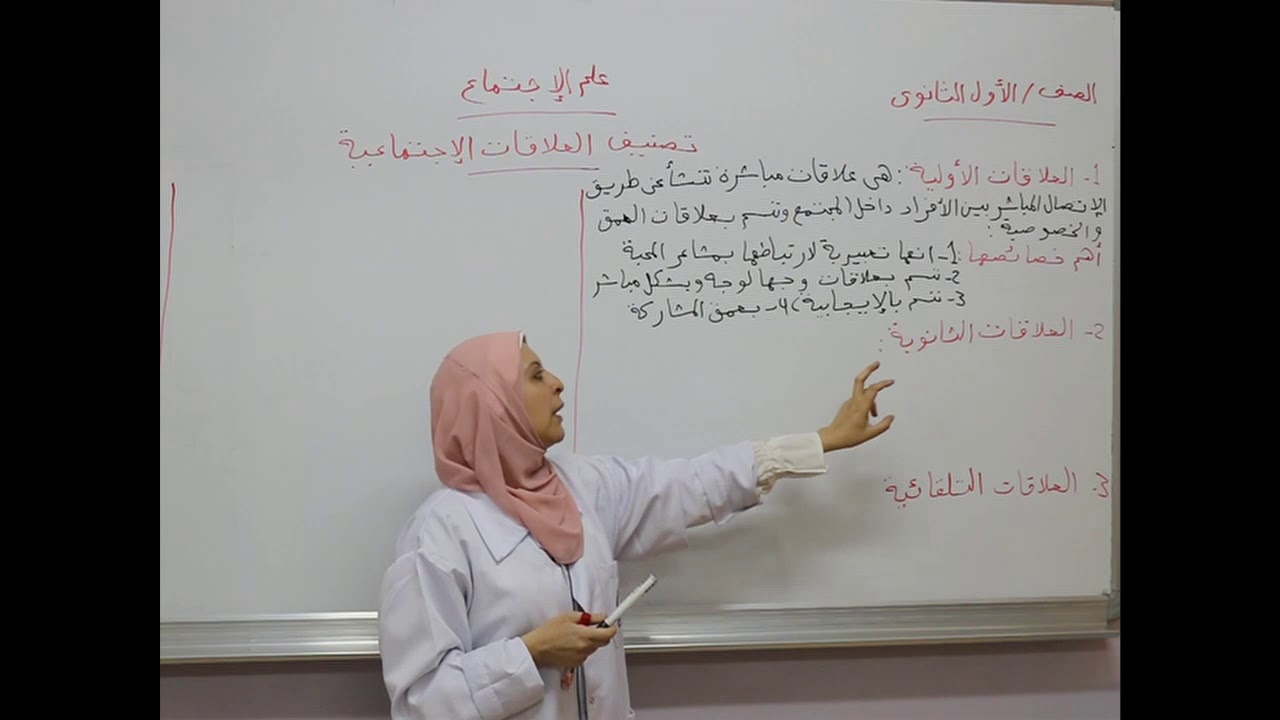 الصف/الأول الثانوى
علم الإجتماع
تصنيف العلاقات الإجتماعية
1- العلاقات الأولية: هى علاقات مباشرة تنشأ عن طريق
الإتصال المباشر بين الأفراد داخل المجتمع وتتسم بعلاقات العمق
والخصوصية:
أهم خصائصها: 1- انها تعبيرية لارتباطها بمشاعر المحبة
2- تتسم بعلاقات وجها لوجه وبشكل مباشر
3- تتسم بالإيجابية، 4- بعمق المشاركة
2- العلاقات الثانوية:
3- العلاقات التلقائية